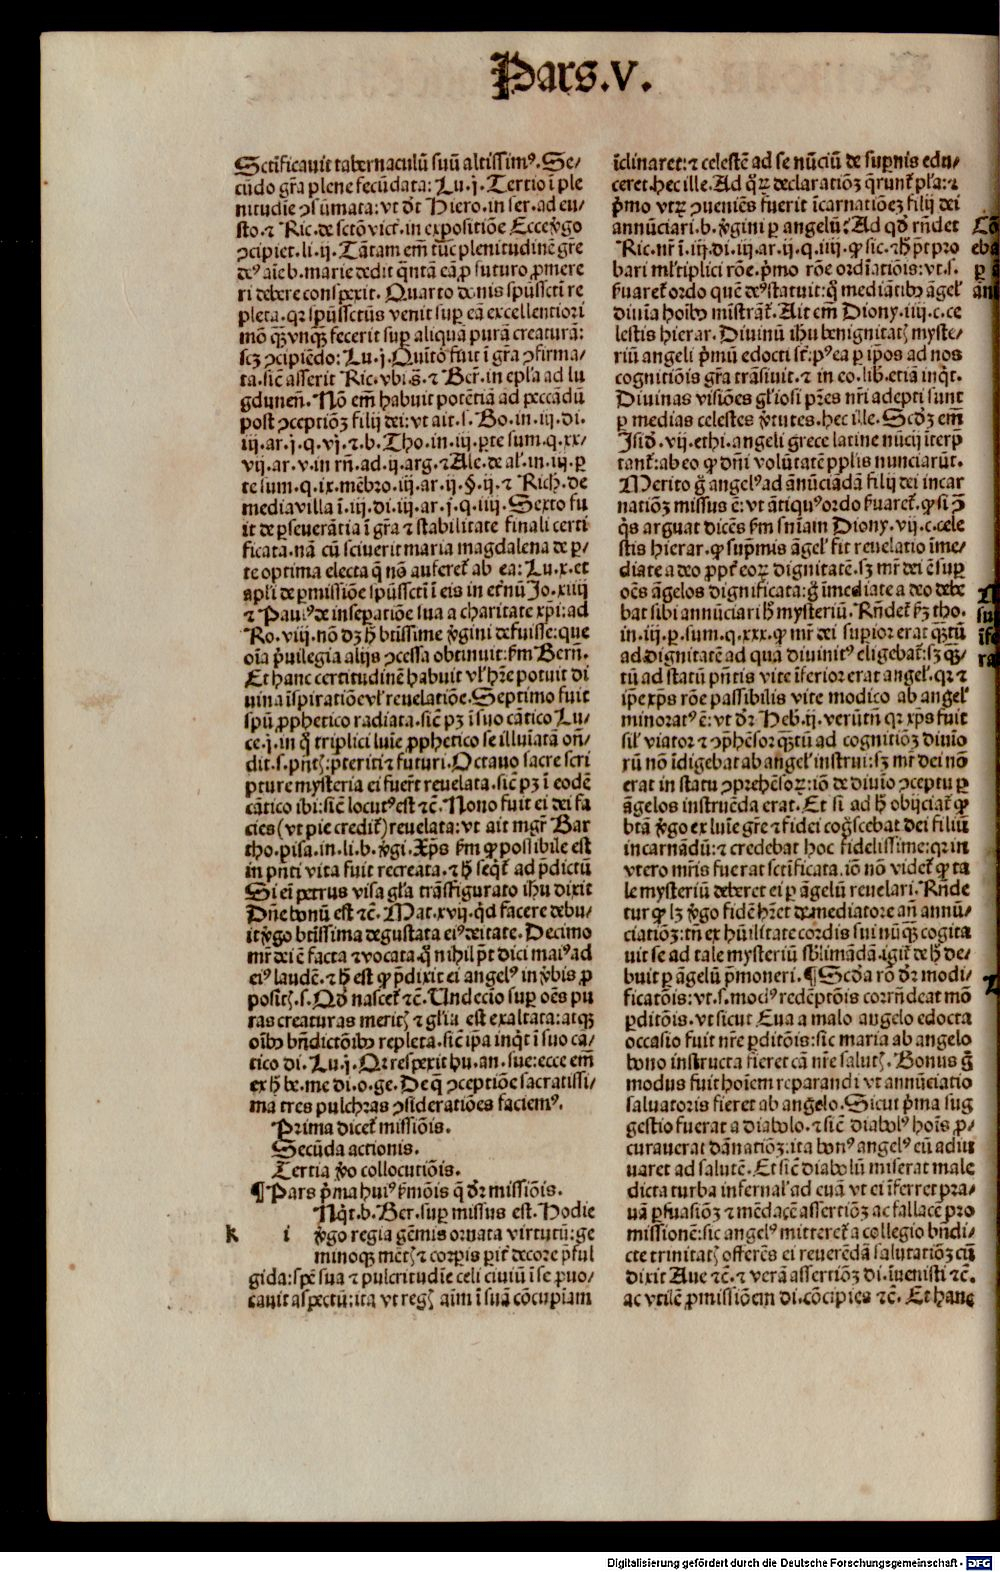 Pars.V.
Sctīficauit tabernaculū suū altissimꝰ. Se/
cūdo gr̄a plene fecūdata: Lu.j. Tertio ī ple
nitudīe ↄsūmata: vt dr̄t Hiero. in ser. ad eu/
sto. ⁊ Ric. de sctō vict̄. in expositiōe Ecce v̄go
ↄcipiet. li.ij. Tātam em̄ tūc plenitudinē gr̄e
deꝰ aīe b. marie dedit q̄ntā eā ꝓ futuro ꝓmere
ri debere conspexit. Quarto donis spūssctī re
pleta. qꝛ spūssctūs venit suꝑ eā excellentiori
mō qꝫ̄ vnqꝫ̄ fecerit suꝑ aliquā purā creaturā:
scꝫ ↄcipiēdo: Lu.j. Quīto fuit ī gr̄a ↄfirma/
ta. sic̄ asserit Ric. vbi.s̄. ⁊ Ber̄. in ep̄la ad lu
gdunen̄. Nō em̄ habuit potētiā ad peccādū
post ↄceptiōꝫ filij dei: vt ait.s. Bo. in.iij.di.
iij.ar.j.q.vj.⁊.b. Tho. in.iij.ꝑte sum.q.xx/
vij.ar.v. in rn̄. ad.ij.arg. ⁊ Ale. de al̄. in.iij.ꝑ
te sum.q.ix. mēbro.iij.ar.ij.§.ij. ⁊ Rich. de
mediauilla ī.iij.di.iij.ar.j.q.iiij. Sexto fu
it de ꝑseuerātia ī gr̄a ⁊ stabilitate finali certi
ficata. nā cū sciuerit maria magdalena de ꝑ/
te optima electa q̄ nō aufere ab ea: Lu.x. et
apl̄i de ꝑmissiōe spūssctī ī eis in et̄nū Jo.xiiij
⁊ Paulꝰ de inseꝑatiōe sua a charitate xp̄i: ad
Ro.viij. nō dꝫ h̄ btīssime v̄gini defuisse: que
oīa p̄uilegia alijs ↄcessa obtinuit: fm̄ Bern̄.
Et hanc certitudinē habuit vl̄ hr̄e potuit di
uina īspiratiōe vl̄ reuelatiōe. Septimo fuit
spū ꝓphetico radiata. sic̄ pꝫ ī suo cātico Lu/
ce.j. in quo triplici luīe ꝓphetico se illuīatā on̄/
dit.s. pn̄tis: p̄teriti ⁊ futuri. Octauo sacre scri
pture mysteria ei fuer̄t reuelata. sic̄ pꝫ ī eodē
cātico ibi: sic̄ locutꝰ est ⁊c̄. Nono fuit ei dei fa
cies (vt pie credit̄) reuelata: vt ait mgr̄ Bar
tho. pisa. in.li.b. v̄gi. Xp̄s fm̄ ꝙ possibile est
in pn̄ti vita fuit recreata. ⁊ h̄ seq̄t̄ ad p̄dictū
Si em̄ petrus visa gl̄a trāsfigurato ihū dixit
Dn̄e bonū est ⁊c̄. Mat.xvij. qd̄ facere debu/
it v̄go btīssima degustata eiꝰ deitate. Decimo
mr̄ dei ē facta ⁊ vocata. quo nihil p̄t dici maiꝰ ad
eiꝰ laudē. ⁊ h̄ est ꝙ p̄dixit ei angelꝰ in v̄bis ꝓ
positis.s. Qd̄ nascet̄ ⁊c̄. Undecio suꝑ oēs pu
ras creaturas meritis ⁊ gl̄ia est exaltata: atqꝫ
oībꝰ bn̄dictōibꝰ repleta. sic̄ ip̄a inq̄t ī suo cā/
tico di. Lu.j. Qꝛ respexit hu. an. sue: ecce em̄
ex h̄ be. me di. o. ge. De q̄ ↄceptiōe sacratissi/
ma tres pulchras ↄsideratiōes faciemꝰ.
Prima dicet̄ missiōis.
Secūda actionis.
Tertia v̄o collocutiōis.
¶ Pars p̄ma huiꝰ fm̄ōis q̄ dr̄ missiōis.
Nq̄t. b. Ber. suꝑ missus est. Hodie
k i v̄go regia gēmis ornata virtutū: ge
minoqꝫ mētis ⁊ corꝑis ꝑit̄ decore p̄ful
gida: spē sua ⁊ pulcritudīe celi ciuiū ī se ꝓuo/
cauit aspectū: ita vt regis aīm ī suā cōcupīam
īclinaret: ⁊ celestē ad se nūciū de suꝑnis edu/
ceret. hec ille. Ad qrꝫ declaratiōꝫ q̄runt̄ pl̄a: ⁊
p̄mo vtrꝫ ↄueniēs fuerit īcarnatiōeꝫ filij dei
annūciari. b. v̄gini ꝑ angelū? Ad qd̄ rn̄det
Ric. nr̄ ī.iij.di.iij.ar.ij.q.iiij. ꝙ sic. ⁊ h̄ p̄t pro
bari ml̄tiplici rōe. p̄mo rōe ordīatiōis: vt.s.
ẜuaret̄ ordo quē deꝰ statuit: quo mediātibꝰ āgel̄
diuīa hoībꝰ mīstrāt̄. Ait em̄ Diony.iiij.c.ce
lestis hierar. Diuinū ihū benignitatis myste/
riū angeli p̄mū edocti st̄: pꝰea ꝑ ip̄os ad nos
cognitiōis gr̄a trāsiuit. ⁊ in eo.lib. etiā inq̄t.
Diuinas visiōes gl̄iosi pr̄es nr̄i adepti sunt
ꝑ medias celestes v̄tutes. hec ille. Scd̄ꝫ em̄
Isid̄.vij.ethi. angeli grece latine nūcij īterp̄
tant̄: ab eo ꝙ dn̄i volūtatē pplis nunciarūt.
Merito g̊ angelꝰ ad annūciādā filij dei incar
natiōꝫ missus ē: vt ātiquꝰ ordo ẜuaret̄. ꝙ si ↄ̄
q̄s arguat dicēs fm̄ sn̄iam Diony.vij.c.cele
stis hierar. ꝙ sup̄mis āgel̄ fit reuelatio īme/
diate a deo ꝓpt̄ eorꝫ dignitatē. sꝫ mr̄ dei ē suꝑ
oēs āgelos dignificata: g̊ īmediate a deo debe
bat sibi annūciari h̄ mysteriū. Rn̄det̄ fꝫ tho.
in.iij.p.sum.q.xxx. ꝙ mr̄ dei suꝑior erat qꝫ̄tū
ad dignitatē ad quā diuinitꝰ eligebat̄: sꝫ qꝫ̄/
tū ad statū pn̄tis vite īferior erat angel̄. qꝛ ⁊
ip̄e xp̄s rōe passibilis vite modico ab angel̄
minoratꝰ ē: vt dr̄ Heb.ij. verūtn̄ qꝛ xp̄s fuit
sil̄ viator ⁊ ↄp̄hēsor qꝫ̄tū ad cognitiōꝫ diuīo
rū nō īdigebat ab angel̄ instrui: sꝫ mr̄ dei nō
erat in statu ↄprehēsorꝫ: iō de diuīo ↄceptu ꝑ
āgelos instruēda erat. Et si ad h̄ obijciat̄ ꝙ
btā v̄go ex luīe gr̄e ⁊ fidei cog̊scebat dei filiū
incarnādū: ⁊ credebat hoc fidelissime: qꝛ in
vtero mr̄is fuerat sctīficata. iō nō videt̄ ꝙ ta
le mysteriū deberet ei ꝑ āgelū reuelari. Rn̄de
tur ꝙ lꝫ v̄go fidē hr̄et de mediatore an̄ annū/
ciatiōꝫ: tn̄ ex hūilitate cordis sui nūqꝫ̄ cogita
uit se ad tale mysteriū sb̄limādā. igit̄ de h̄ de/
buit ꝑ āgelū p̄moneri. ¶ Scd̄a rō dr̄ modi/
ficatōis: vt.s. modꝰ redēptōis corrn̄deat mō
ꝑditōis. vt sicut Eua a malo angelo edocta
occasio fuit nr̄e ꝑditōis: sic maria ab angelo
bono instructa fieret cā nr̄e salutis. Bonus g̊
modus fuit hoīem reparandi vt annūciatio
saluatoris fieret ab angelo. Sicut p̄ma sug
gestio fuerat a diabolo. ⁊ sic̄ diabolꝰ hoīs ꝓ/
curauerat dānatiōꝫ: ita bonꝰ angelꝰ eū adiu
uaret ad salutē. Et sic̄ diabolū miserat male
dicta turba infernal̄ ad euā vt ei īferret pra/
uā ꝑsuasiōꝫ ⁊ mēdacē assertiōꝫ ac fallacē pro
missionē: sic angelꝰ mitteret̄ a collegio bn̄di/
cte trinitatis offerēs ei reuerēdā salutatiōꝫ cū
dixit Aue ⁊c̄. ⁊ verā assertiōꝫ di. īuenisti ⁊c̄.
ac vtilē ꝓmissiōem di. cōcipies ⁊c̄. Et hanc
Digitalisierung gefördert durch die Deutsche Forschungsgemeinschaft - DFG